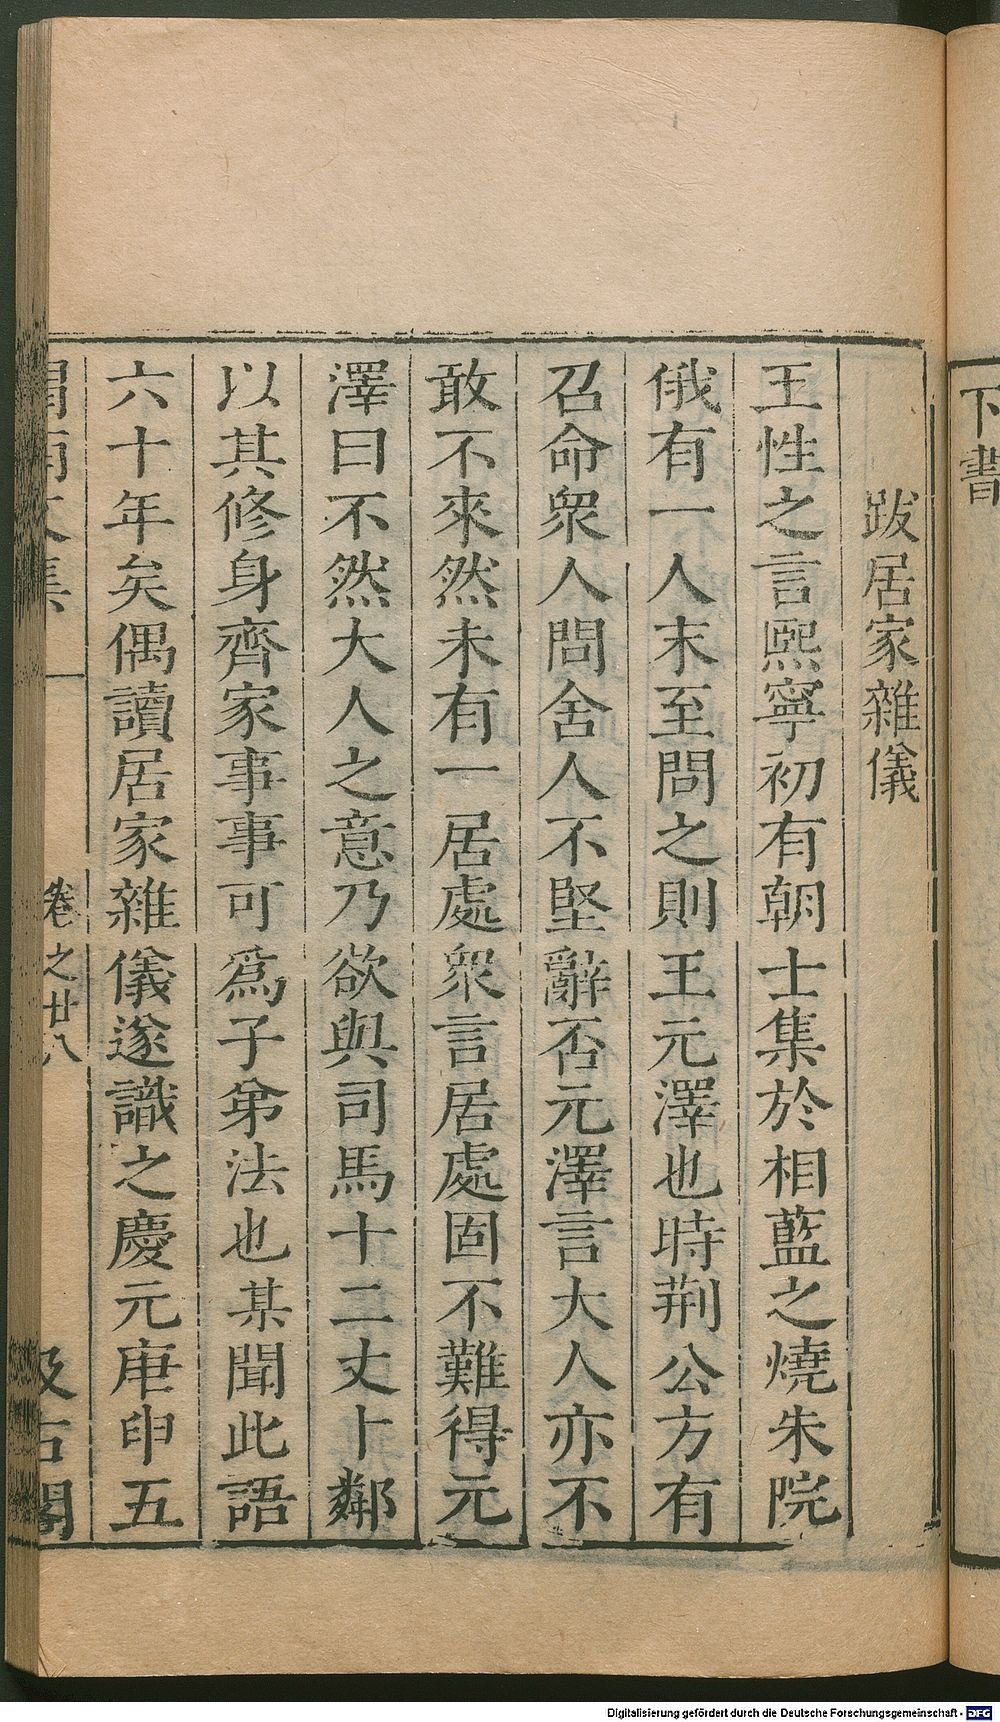 下書
跋居家雜儀
王性之言熙寧初有朝士集於相藍之燒朱院
俄有一人末至問之則王元澤也時荆公方有
召命衆人問舍人不堅辭否元澤言大人亦不
敢不來然未有一居處衆言居處固不難得元
澤曰不然大人之意乃欲與司馬十二丈卜鄰
以其修身齊家事事可爲子弟法也某聞此語
六十年矣偶讀居家雜儀遂識之慶元庚申五
渭南文集 卷之廿八 汲古閣
Digitalisierung gefördert durch die Deutsche Forschungsgemeinschaft - DFG